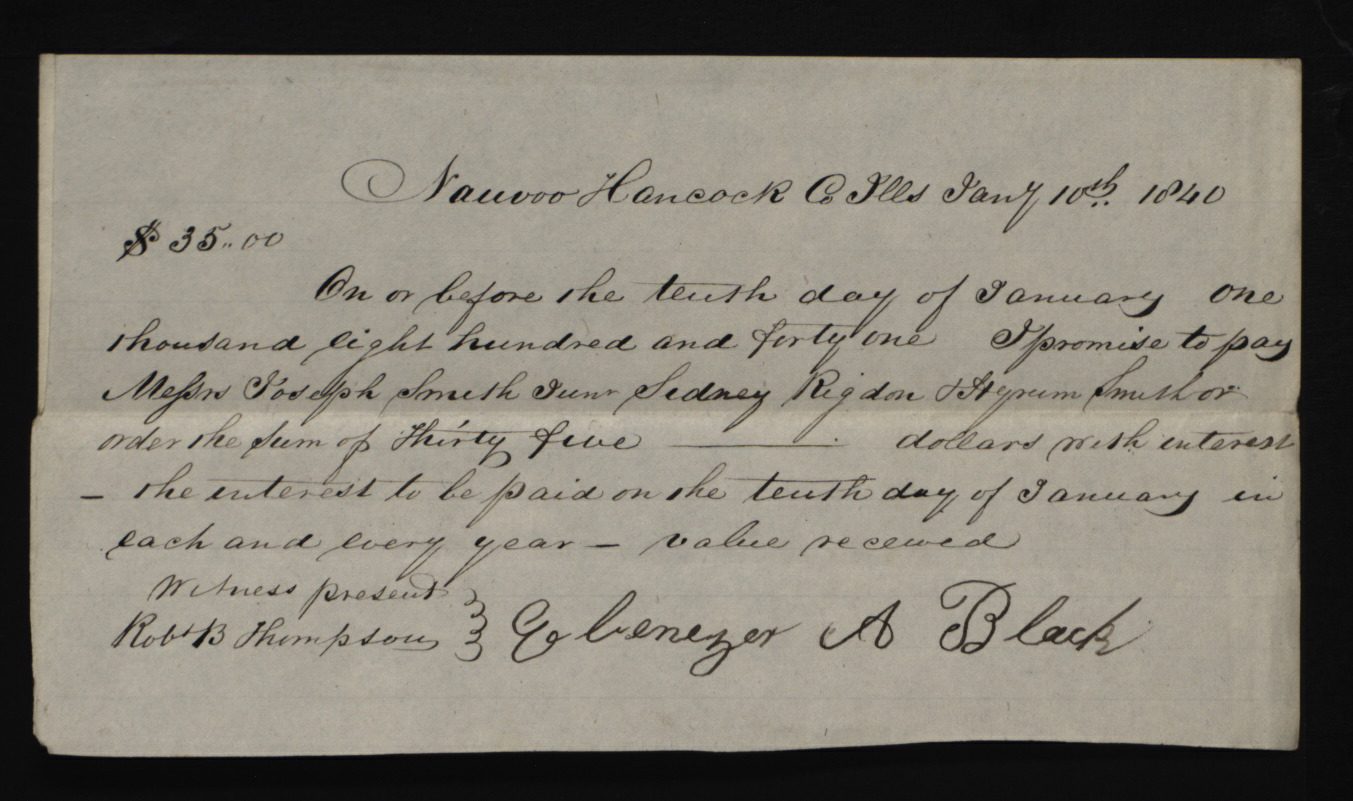 Nauvoo Hancock Co Ills Jany 10th 1840
$35.00
On or before the tenth day of January one
thousand eight hundred and forty one I promise to pay
Messrs Joseph Smith Junr Sidney Rigdon & Hyrum Smith or
order the sum of Thirty five ——— dollars with interest
– the interest to be paid on the tenth day of January in
each and every year – value received
Witness present
Robt B Thompson } Ebenezer A Black